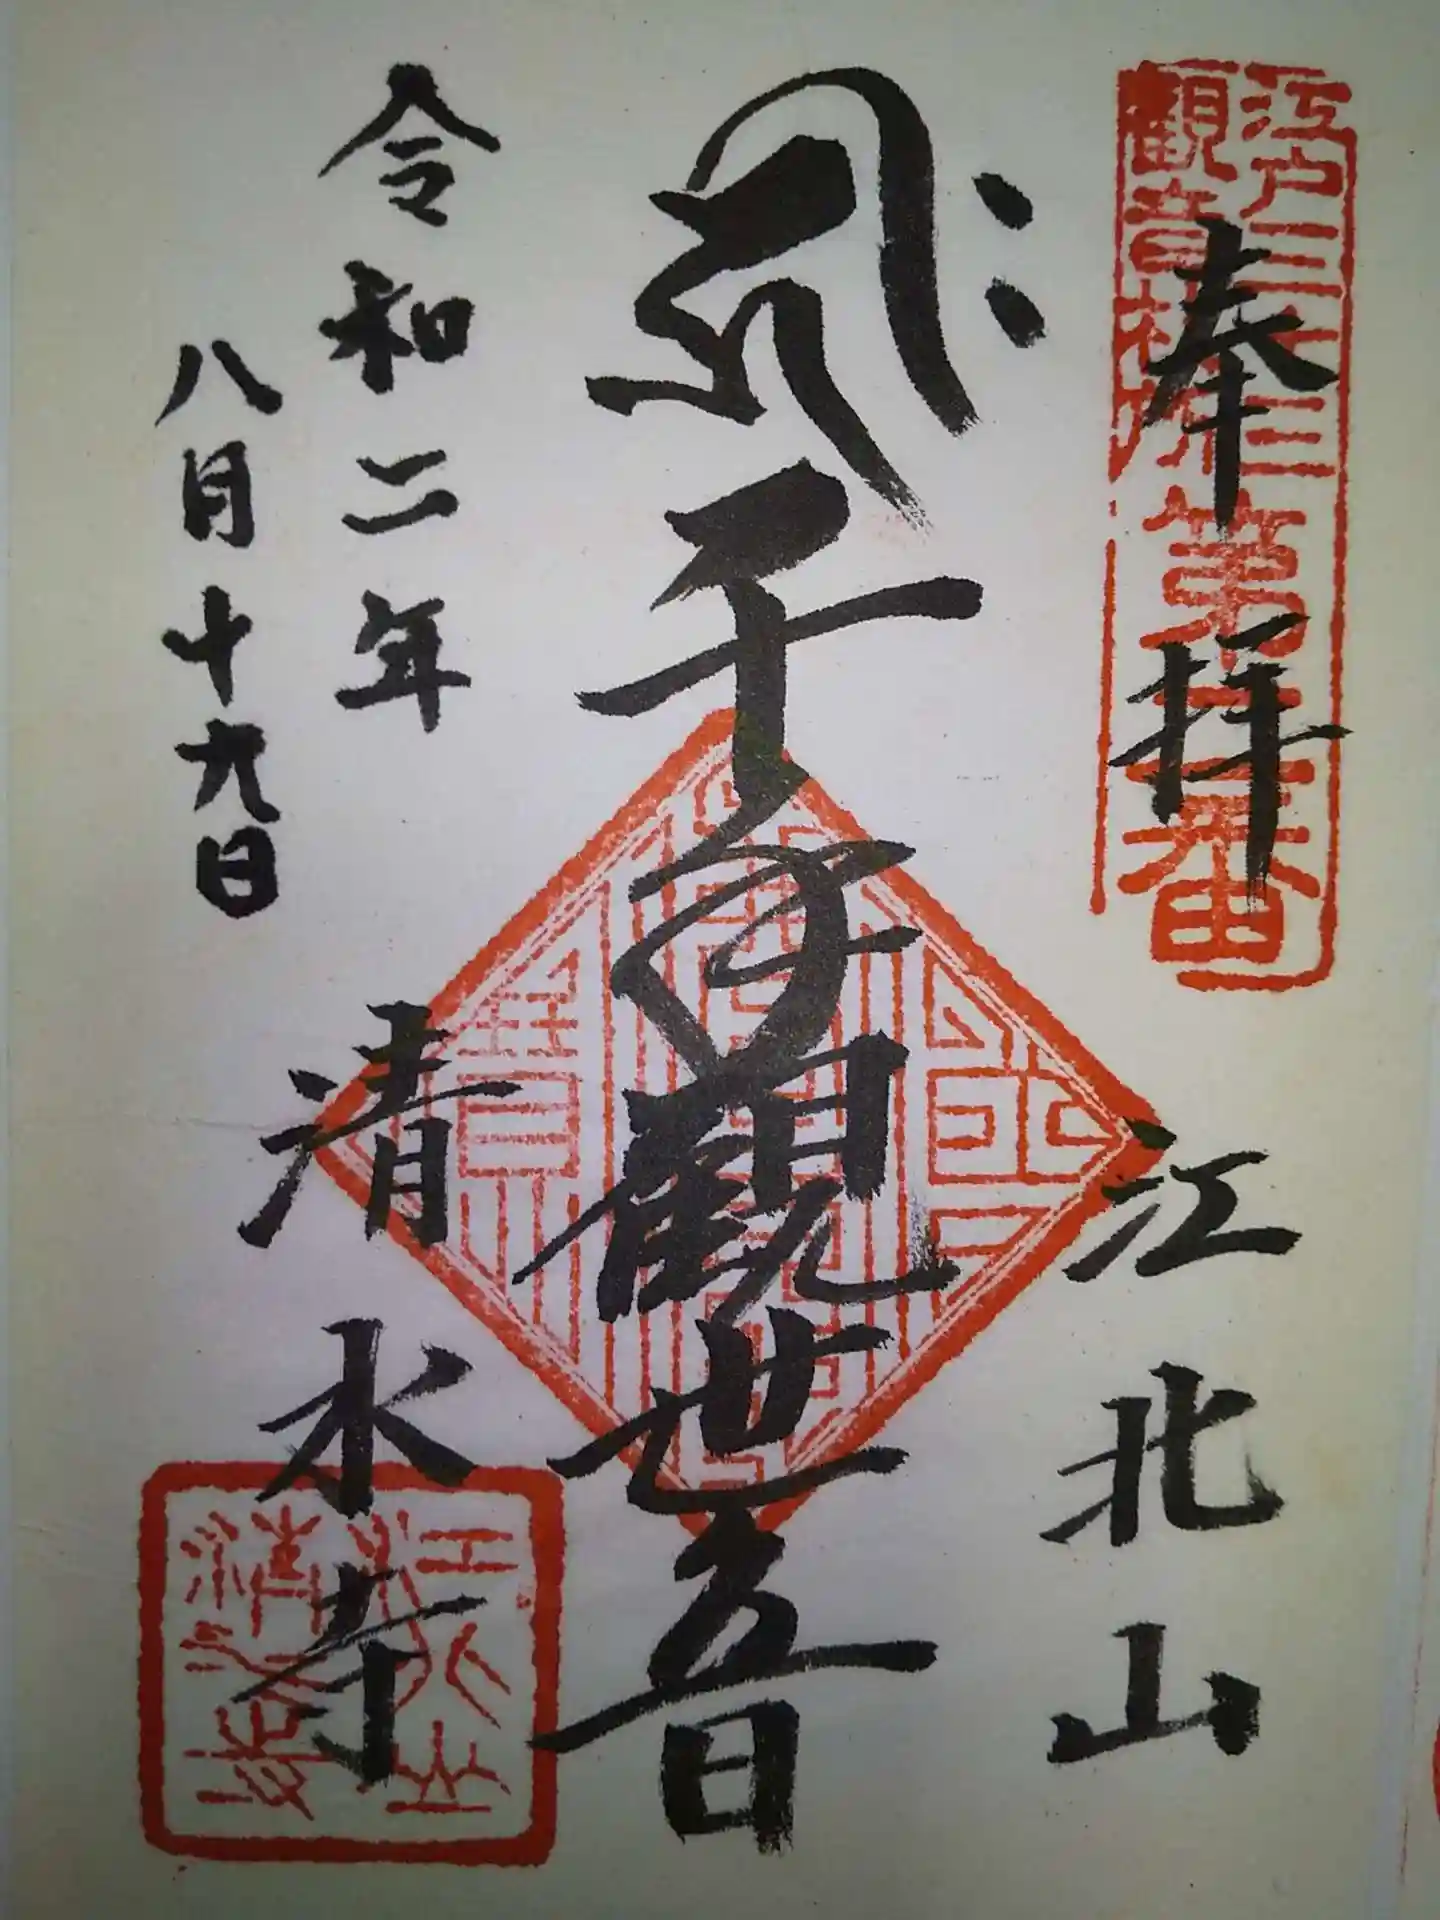 江戸三十三
観音札所
第二番
奉拝
江北山
千手観世音
令和二年
八月十九日
清水寺